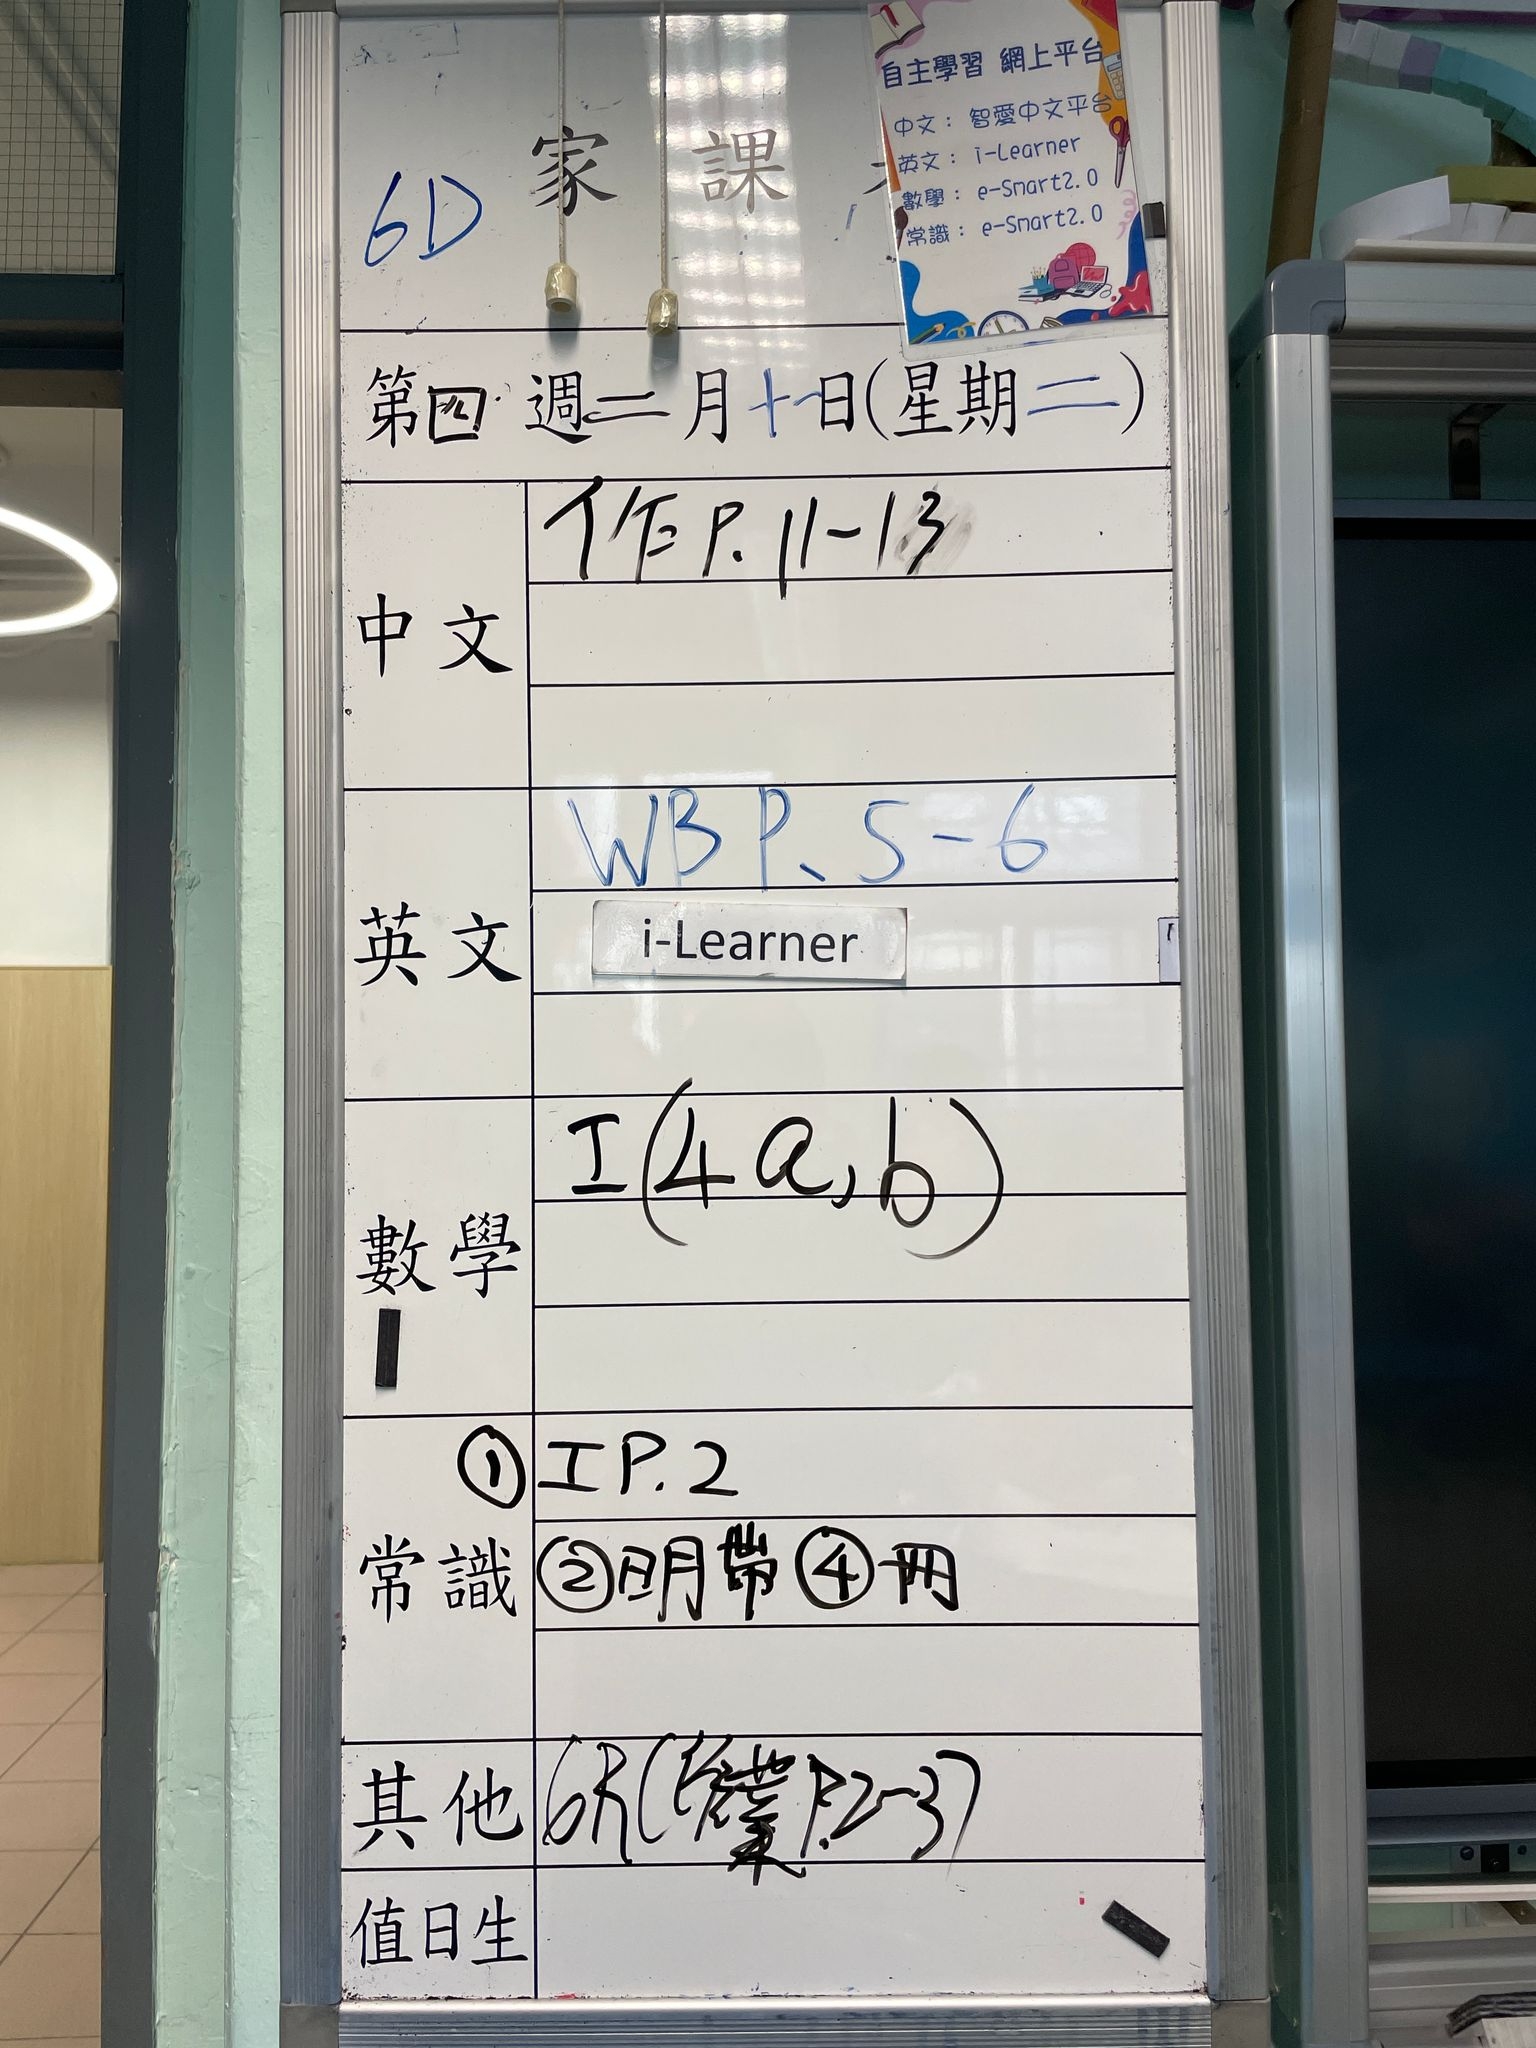 自主學習 網上平台
中文：智愛中文平台
英文：i-Learner
數學：e-Smart2.0
常識：e-Smart2.0
家課
6D
第四週二月十日(星期二)
中文
作P.11-13
英文
WB P.5-6
i-Learner
數學
工(4a,b)
常識
①工P.2
②明帶④冊
其他
(作業P.2-3)
值日生